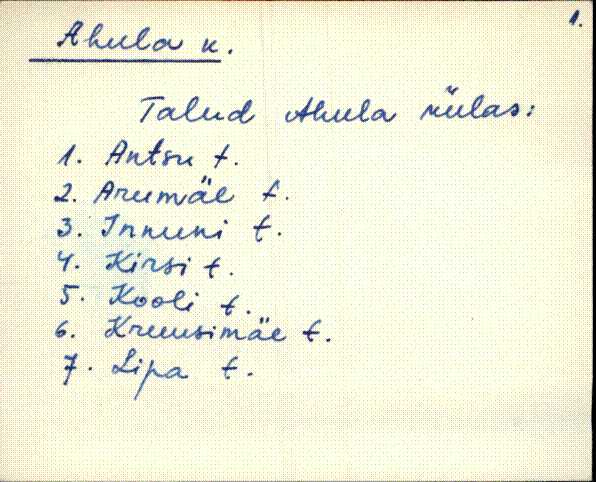 1.
Ahula k.
Talud Ahula külas:
1. Antsu t.
2. Arumäe t.
3. Innuni t.
4. Kirsi t.
5. Kooli t.
6. Kruusimäe t.
7. Lipa t.